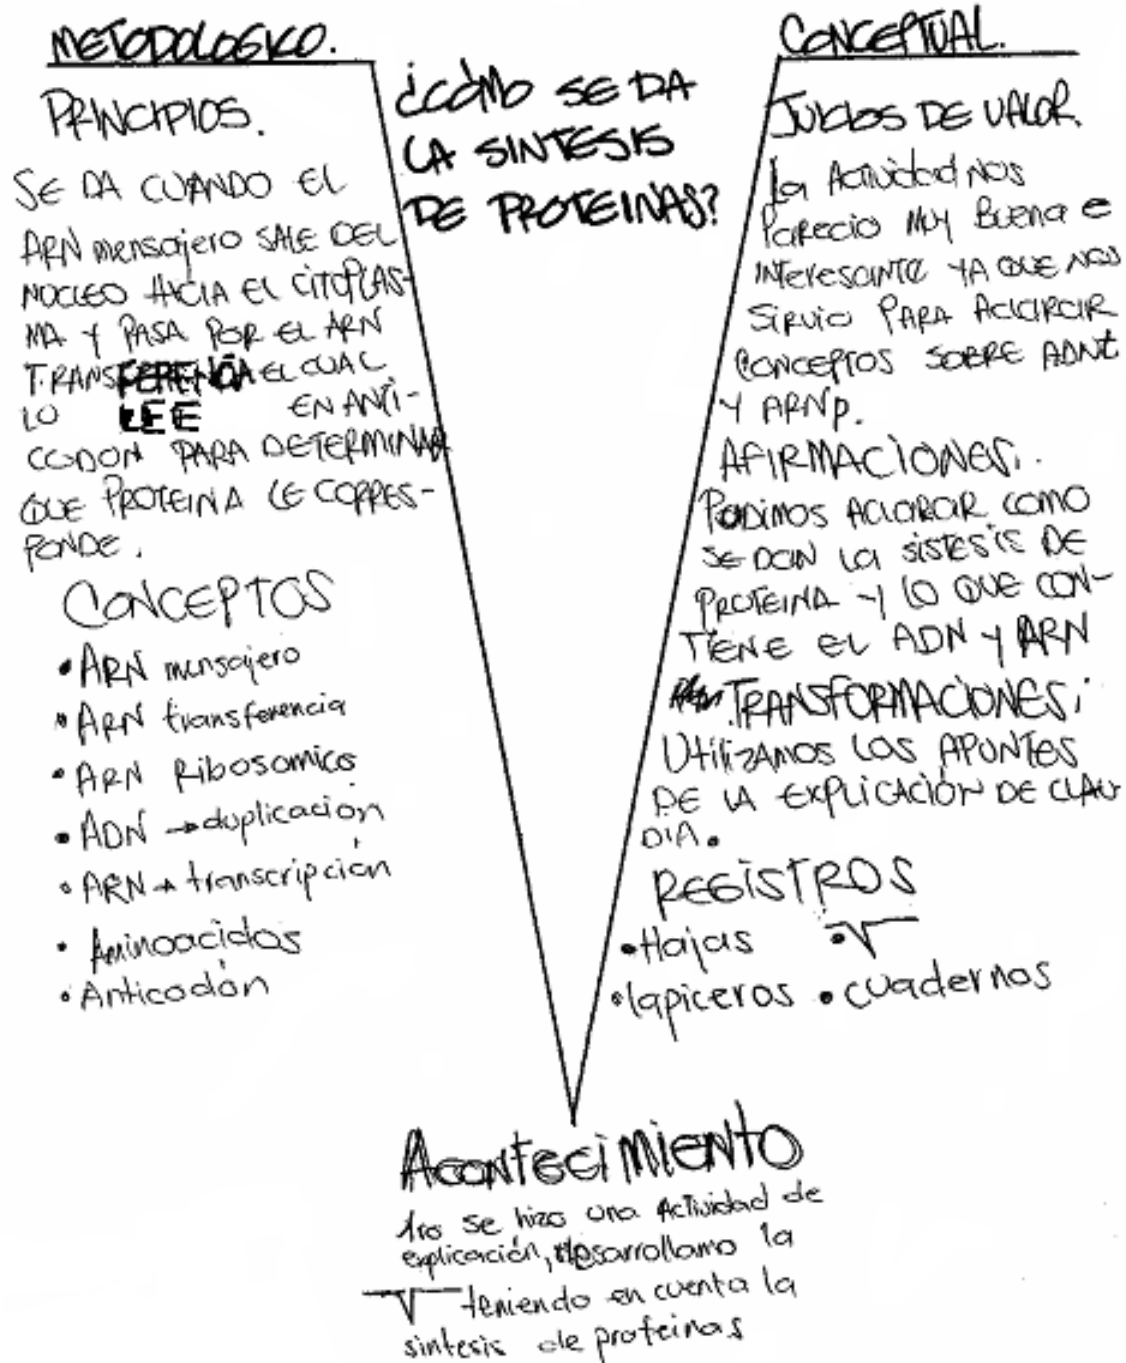 METODOLOGICO.
PRINCIPIOS.
SE DA CUANDO EL
ARN mensajero SALE DEL
NUCLEO HACIA EL CITOPLAS-
MA Y PASA POR EL ARN
TRANSFERENCIA EL CUAL
LO LEE EN ANTI-
CODON PARA DETERMINAR
QUE PROTEINA LE CORRES-
PONDE.
CONCEPTOS
• ARN mensajero
• ARN transferencia
• ARN Ribosomico
• ADN → duplicación
• ARN → transcripción
• Aminoacidos
• Anticodón
¿CÓMO SE DA
LA SINTESIS
DE PROTEINAS?
CONCEPTUAL.
JUICIOS DE VALOR.
La Actividad NOS
Parecio MUY Buena e
INTeresante YA QUE NOS
SIRVIO PARA Aclarar
CONCEPTOS SOBRE ADNt
Y ARNp.
AFIRMACIONES.
Pudimos ACLARAR COMO
SE DAN LA SISTESIS DE
PROTEINA Y LO QUE CON-
TIENE EL ADN Y ARN
TRANSFORMACIONES:
UtiliZAMOS LOS APUNTES
DE LA EXPLICACIÓN DE CLAU
DIA.
REGISTROS
• Hojas • V
• lapiceros • cuadernos
Acontecimiento
1ro se hizo una Actividad de
explicación, desarrollamo la
V teniendo en cuenta la
sintesis de proteinas